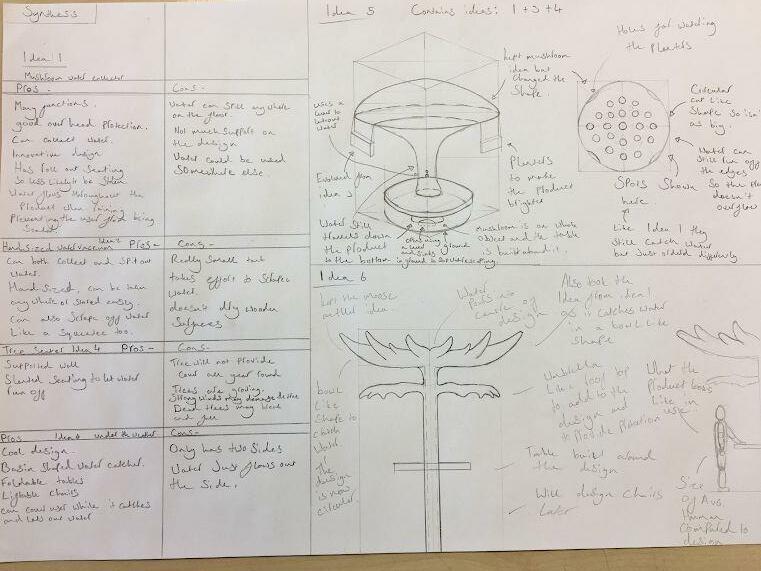 Synthesis
Idea 1
Mushroom water collector
Pros -
Many functions.
good over head Protection.
Can collect water.
Innovative design
Has foll out Seating
So less likely to be stolen
Water flows throughout the
Product when raining
Preventing the user from being
Soaked
Cons -
Water can still any where
on the floor.
Not much support on
the design
Water could be used
Somewhere else.
Hand sized water vacuum Idea 2 Pros -
Can both collect and spit out
water.
Hand Sized, can be taken
any where or stored easily.
Can also scrape off water
Like a Squeegee too.
Cons -
Really small tank
takes effort to scrape
Water.
doesn't dry wooden
Surfaces
Tree Seater Idea 4 Pros -
Supported well
Slanted Seating to let water
run off
Cons -
Tree will not provide
cover all year round
Trees are growing.
Strong winds may damage device
Dead trees may break
and fall
Pros Idea 4 under the weather
Cool design.
Basin Shaped water catcher.
Foldable tables
Liftable Chairs
can cover user while it catches
and lets our water
Cons -
Only has two Sides
Water Just flows out
the Side.
Idea 5 Contains ideas: 1 + 3 + 4
uses a
lever to
water
Evolved from
idea 3
Water Still
travels down
the product
to the bottom
kept mushroom
idea but
changed the
Shape.
Planters
to make
the Product
brighter
Mushroom is one whole
object and the table
is built around it.
Holes for watering
the Planters
Circular
cut like
Shape so isn't
as big.
Water can
Still run off
the edges
So the Plant
doesn't
overflow
Spots Shown
here.
Like Idea 1 they
Still catch water
but Just differently
Idea 6
kept the moose
antler idea.
Water
Pours in
centre of
design
Also took the
Idea from idea 1
as it catches water
in a bowl like
Shape
bowl
Like
Shape to
catch
Water
The
design
is now
circular
Umbrella
Like roof top
to add to the
design and
to Provide Protection
Table built around
the design
Will design Chairs
Later
What the
Product looks
Like in
use.
Size
of Avg.
Human
Compared to
design